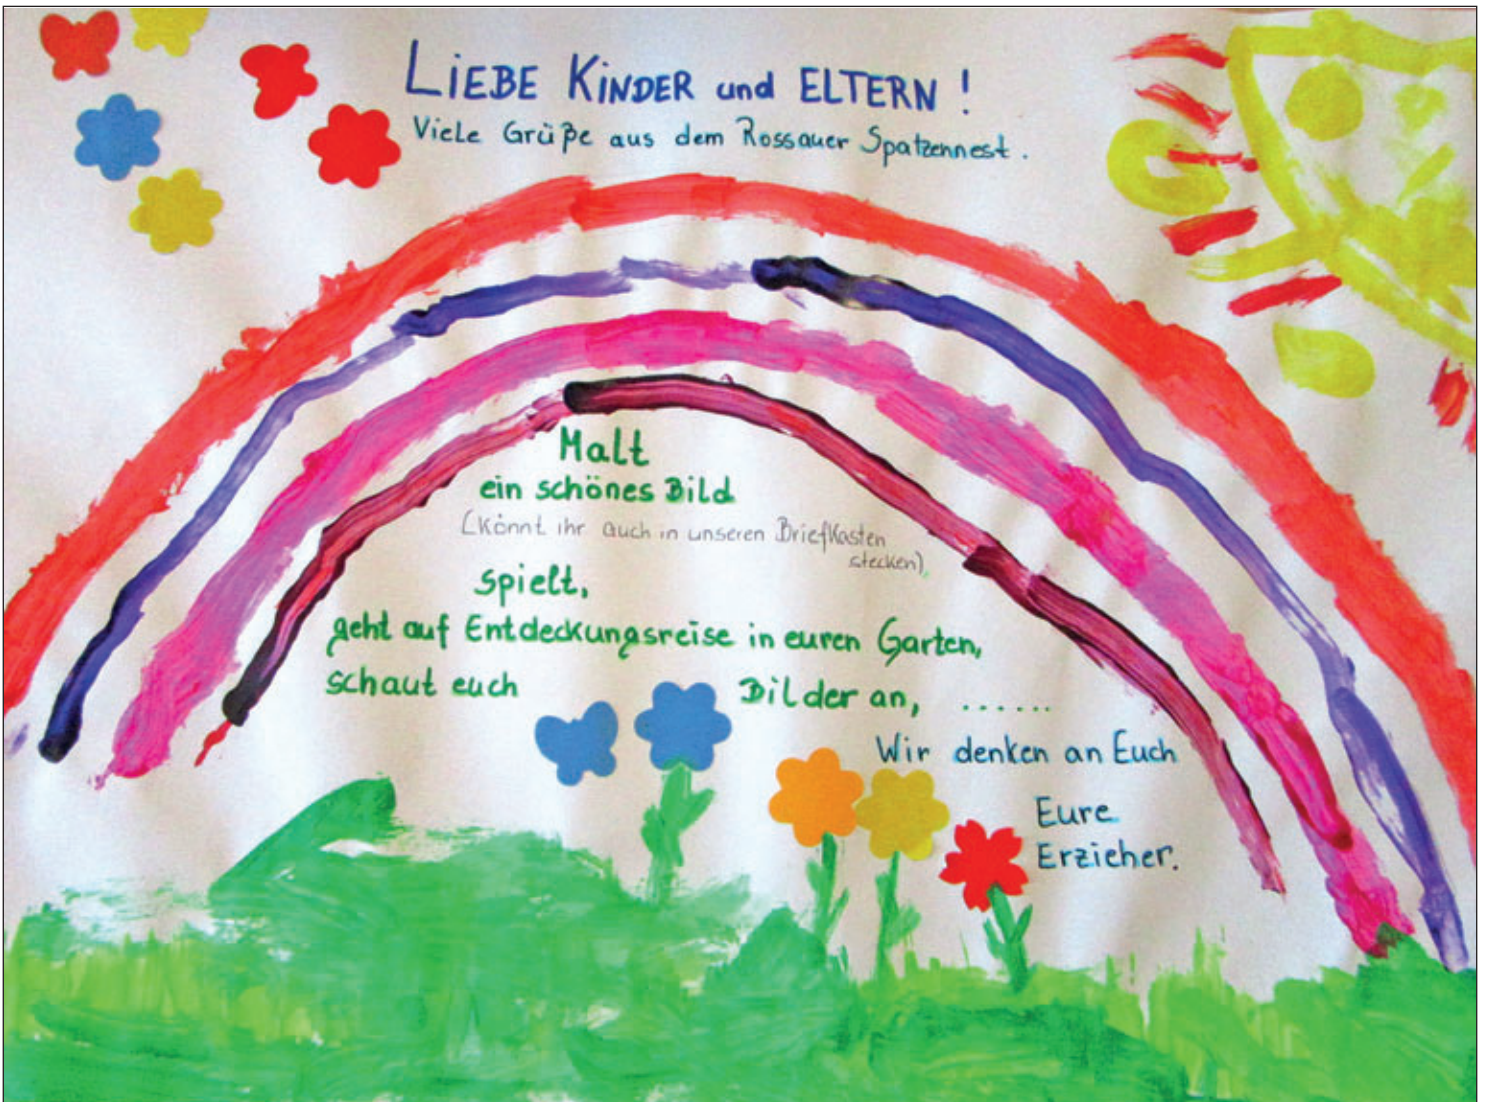 LIEBE KINDER und ELTERN !
Viele Grüße aus dem Rossauer Spatzennest.
Malt
ein schönes Bild
(könnt ihr auch in unseren Briefkasten
stecken),
spielt,
geht auf Entdeckungsreise in euren Garten,
schaut euch Bilder an, ......
Wir denken an Euch
Eure
Erzieher.